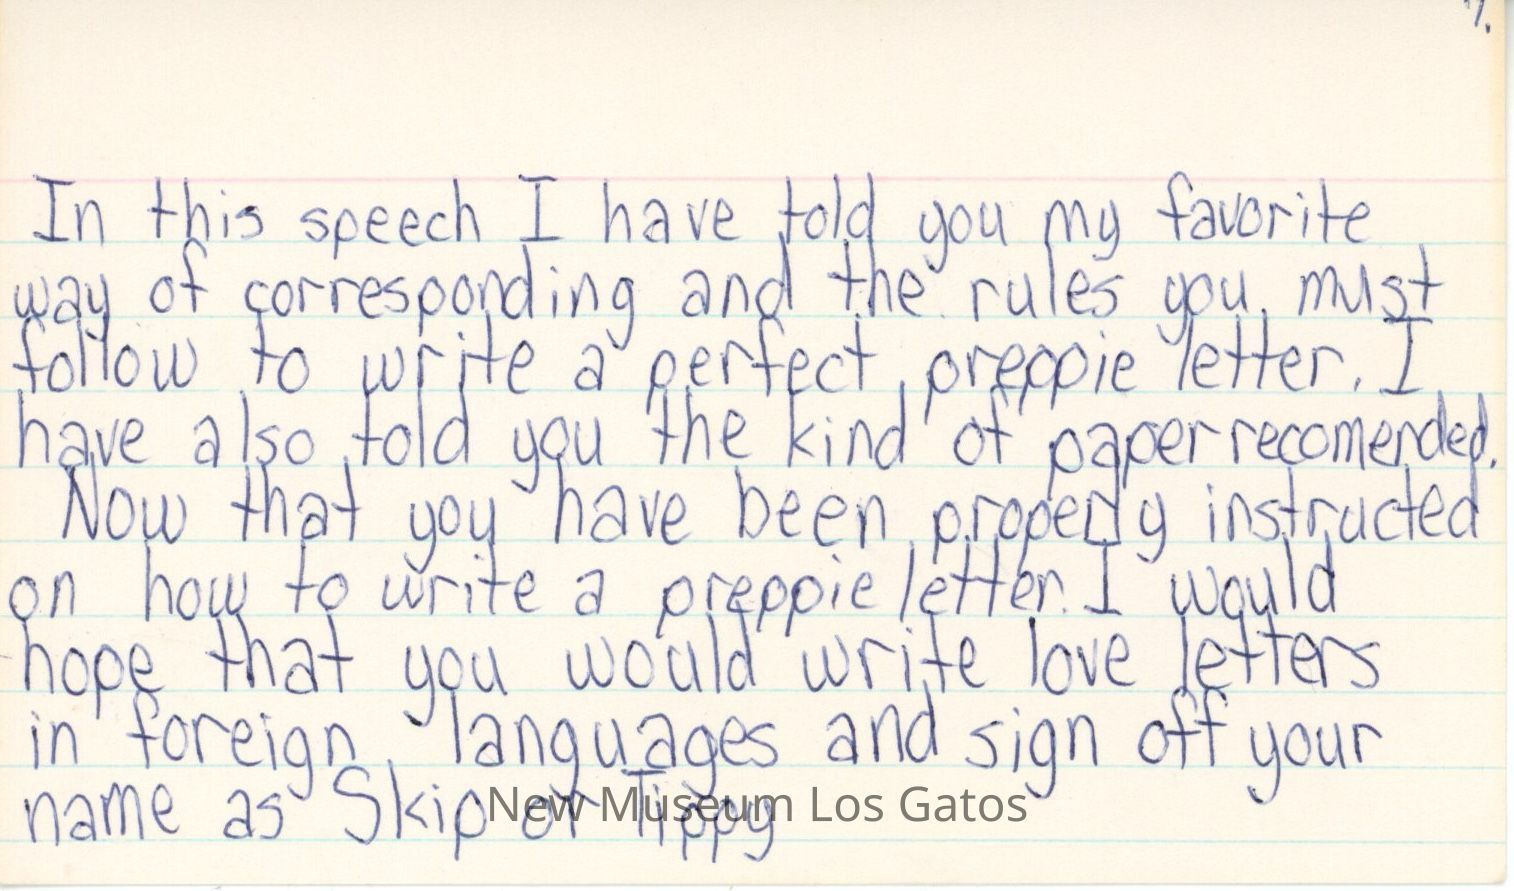 7.
In this speech I have told you my favorite
way of corresponding and the rules you must
follow to write a perfect preppie letter. I
have also told you the kind of paper recomended.
Now that you have been properly instructed
on how to write a preppie letter. I would
hope that you would write love letters
in foreign languages and sign off your
name as Skip or Tippy
New Museum Los Gatos